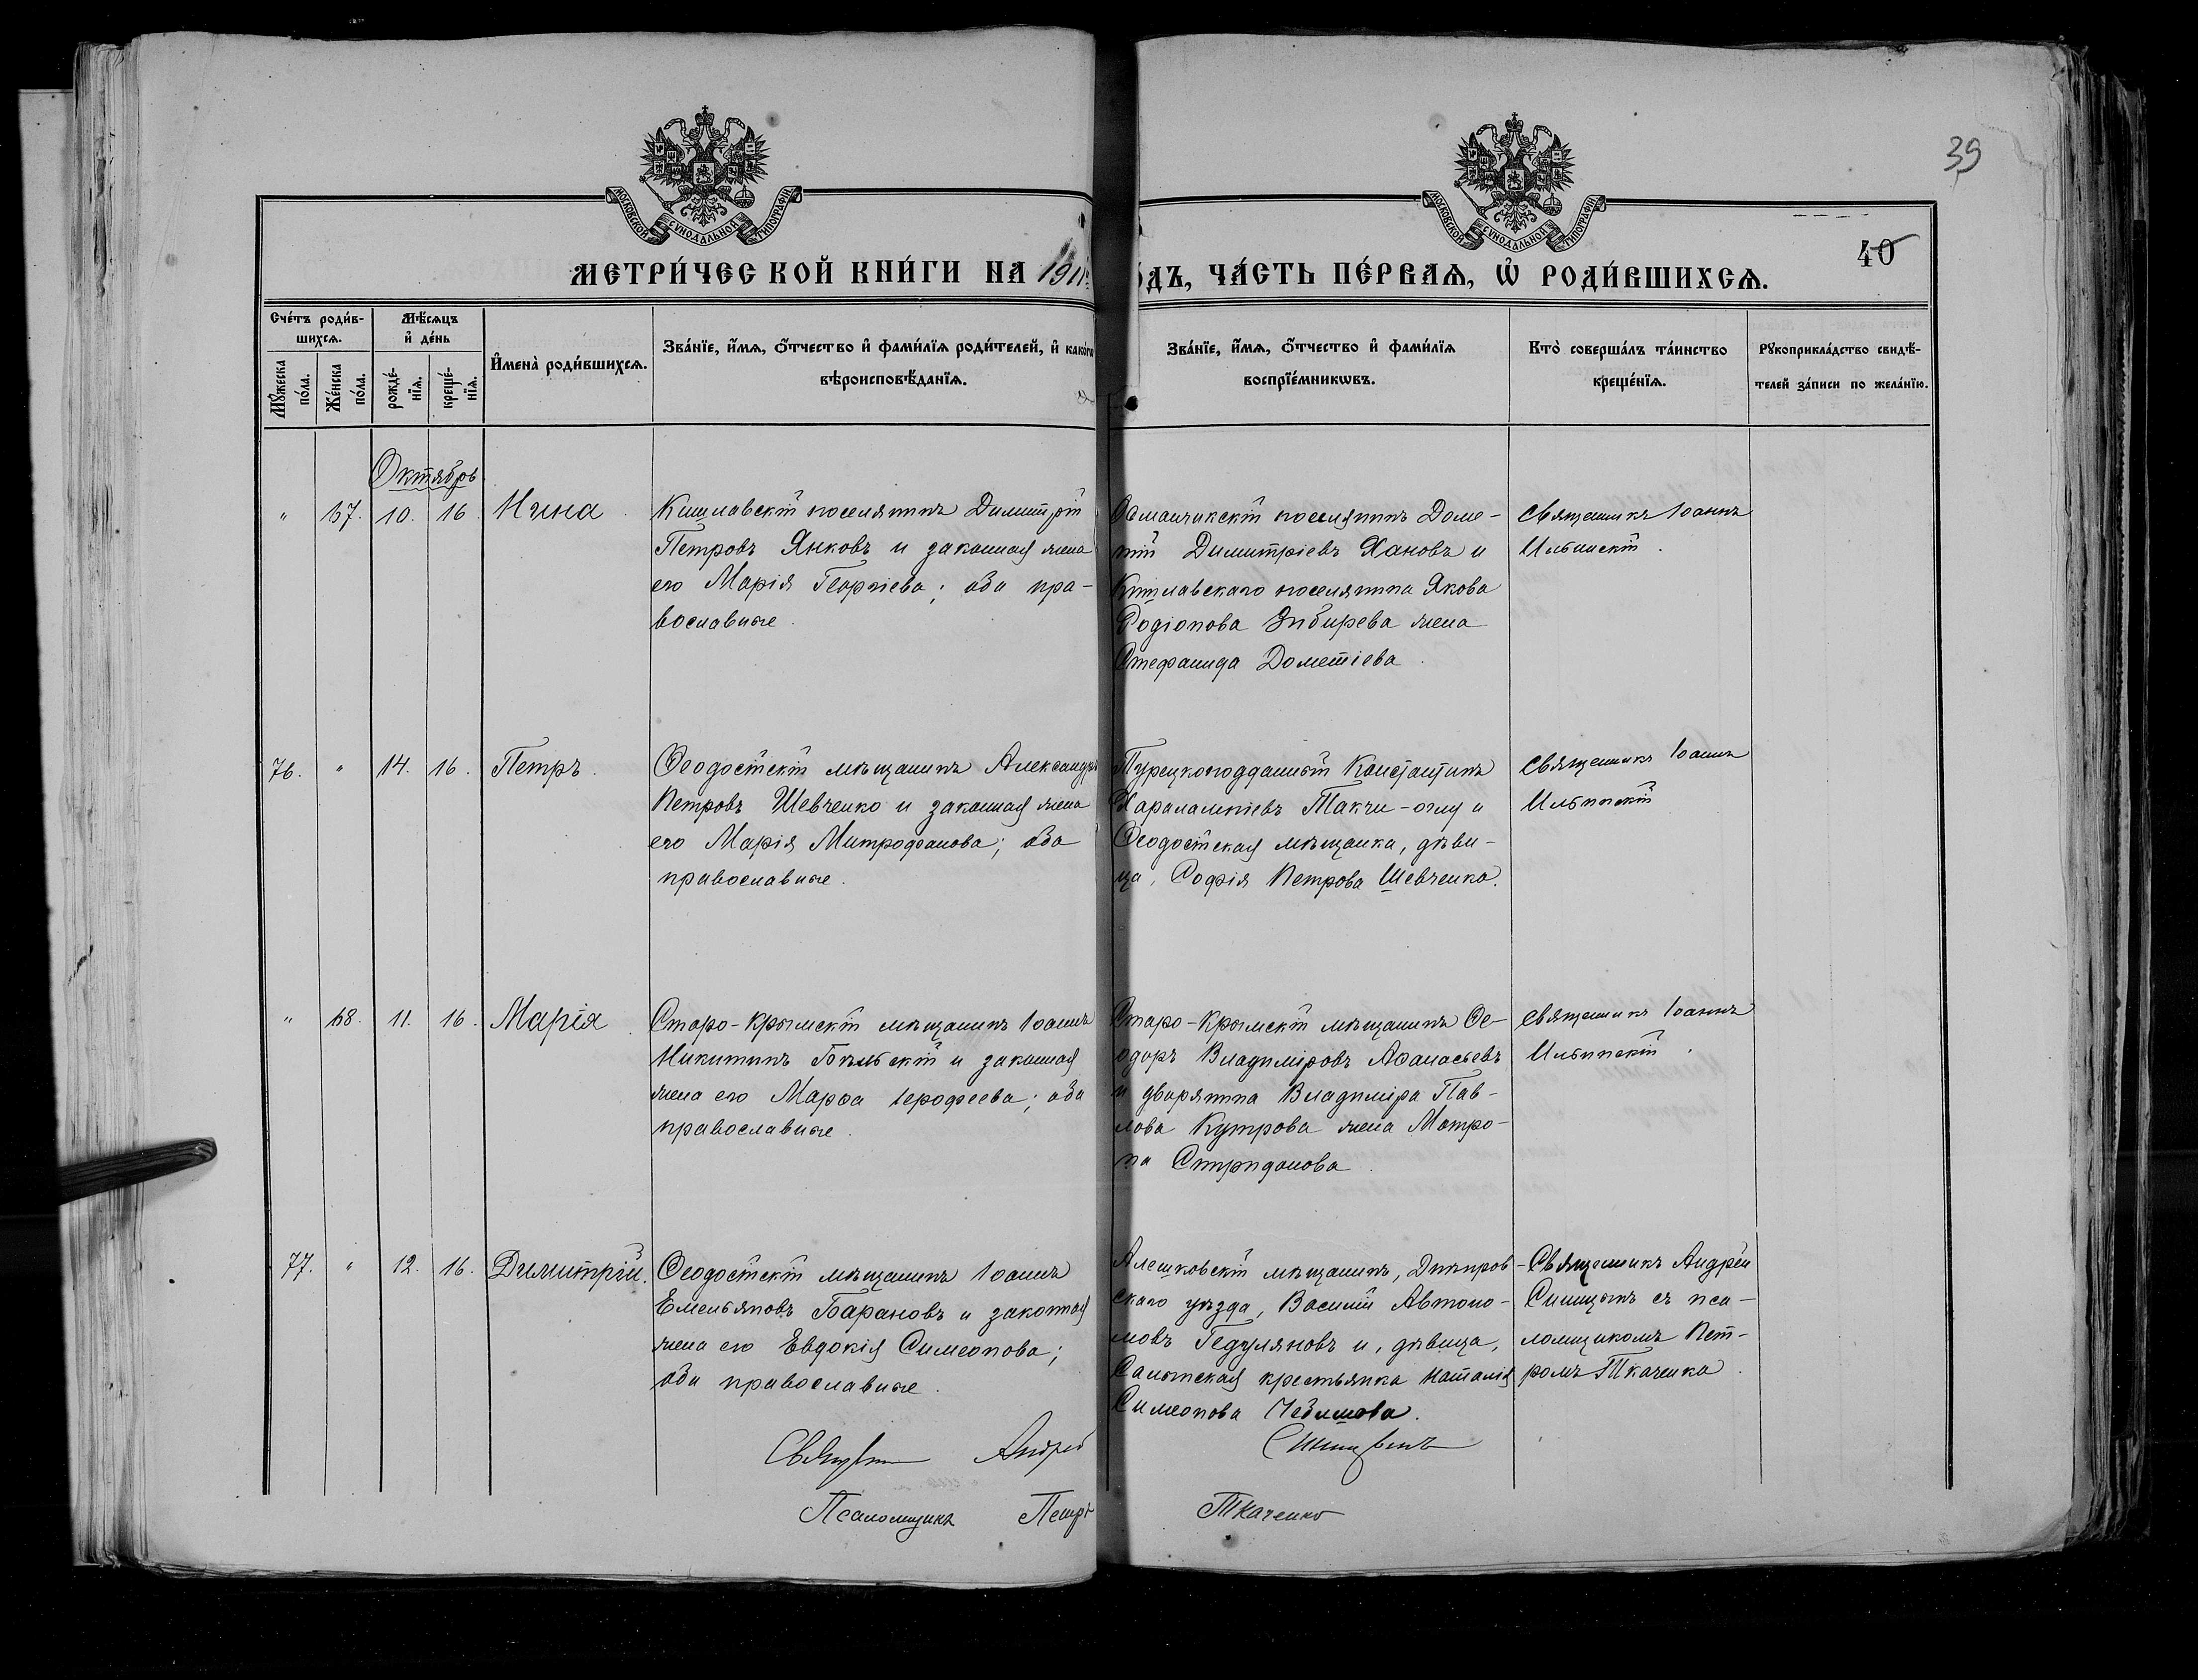 39
40
МОСКОВСКОЙ СѴНОДАЛЬНОЙ ТИПОГРАФІИ
МОСКОВСКОЙ СѴНОДАЛЬНОЙ ТИПОГРАФІИ
МЕТРИ́ЧЕСКОЙ КНИ́ГИ НА 1911
ОДЪ, ЧА́СТЬ ПЕ́РВАѦ, Ѡ҆ РОДИ́ВШИХСѦ.
Сче́тъ роди́в-
шихсѧ.
Мꙋ́жеска
по́ла.
Же́нска
по́ла.
Мѣ́сѧцъ
и҆ де́нь
рожде́-
нїѧ.
креще́-
нїѧ.
И҆мена̀ роди́вшихсѧ.
Зва́нїе, и҆́мѧ, ѻ҆́тчество и҆ фами́лїѧ роди́телей, и҆ како́гѡ
вѣроисповѣ́данїѧ.
Зва́нїе, и҆́мѧ, ѻ҆́тчество и҆ фами́лїѧ
воспрїе́мникѡвъ.
Кто̀ соверша́лъ та́инство
креще́нїѧ.
Рꙋкоприкла́дство свидѣ́-
телей за́писи по жела́нїю.
Октябрь
" 67. 10. 16. Нина.
Кишлавскій поселянинъ Димитрій
Петровъ Янковъ и законная жена
его Марія Георгіева; оба пра-
вославные.
Османчикскій поселянинъ Доме-
тій Димитріевъ Хановъ и
Кишлавскаго поселянина Якова
Родіонова Зибирева жена
Стефанида Дометіева.
Священникъ Іоаннъ
Ильинскій.
76. " 14. 16. Петръ.
Ѳеодосійскій мѣщанинъ Александръ
Петровъ Шевченко и законная жена
его Марія Митрофанова; оба
православные.
Турецкоподданный Константинъ
Харалампіевъ Такчи-оглу и
Ѳеодосійская мѣщанка, дѣви-
ца, Софія Петрова Шевченко.
Священникъ Іоаннъ
Ильинскій
" 68. 11. 16. Марія.
Старо-Крымскій мѣщанинъ Іоаннъ
Никитинъ Бѣльскій и законная
жена его Марѳа Іерофеева; оба
православные.
Старо-Крымскій мѣщанинъ Ѳе-
одоръ Владиміровъ Аѳанасьевъ
и дворянина Владиміра Пав-
лова Кутрова жена Матро-
на Спиридонова.
Священникъ Іоаннъ
Ильинскій.
77. " 12. 16. Димитрій.
Ѳеодосійскій мѣщанинъ Іоаннъ
Емельяновъ Барановъ и законная
жена его Евдокія Симеонова;
оба православные.
Алешковскій мѣщанинъ, Днѣпров-
скаго уѣзда, Василій Автоно-
мовъ Гедуляновъ и, дѣвица,
крестьянка Наталія
Симеонова
Священникъ Андрей
Синицынъ съ пса-
ломщикомъ Пет-
ромъ Ткаченко.
Священникъ Андрей Синицынъ
Псаломщикъ Петръ Ткаченко